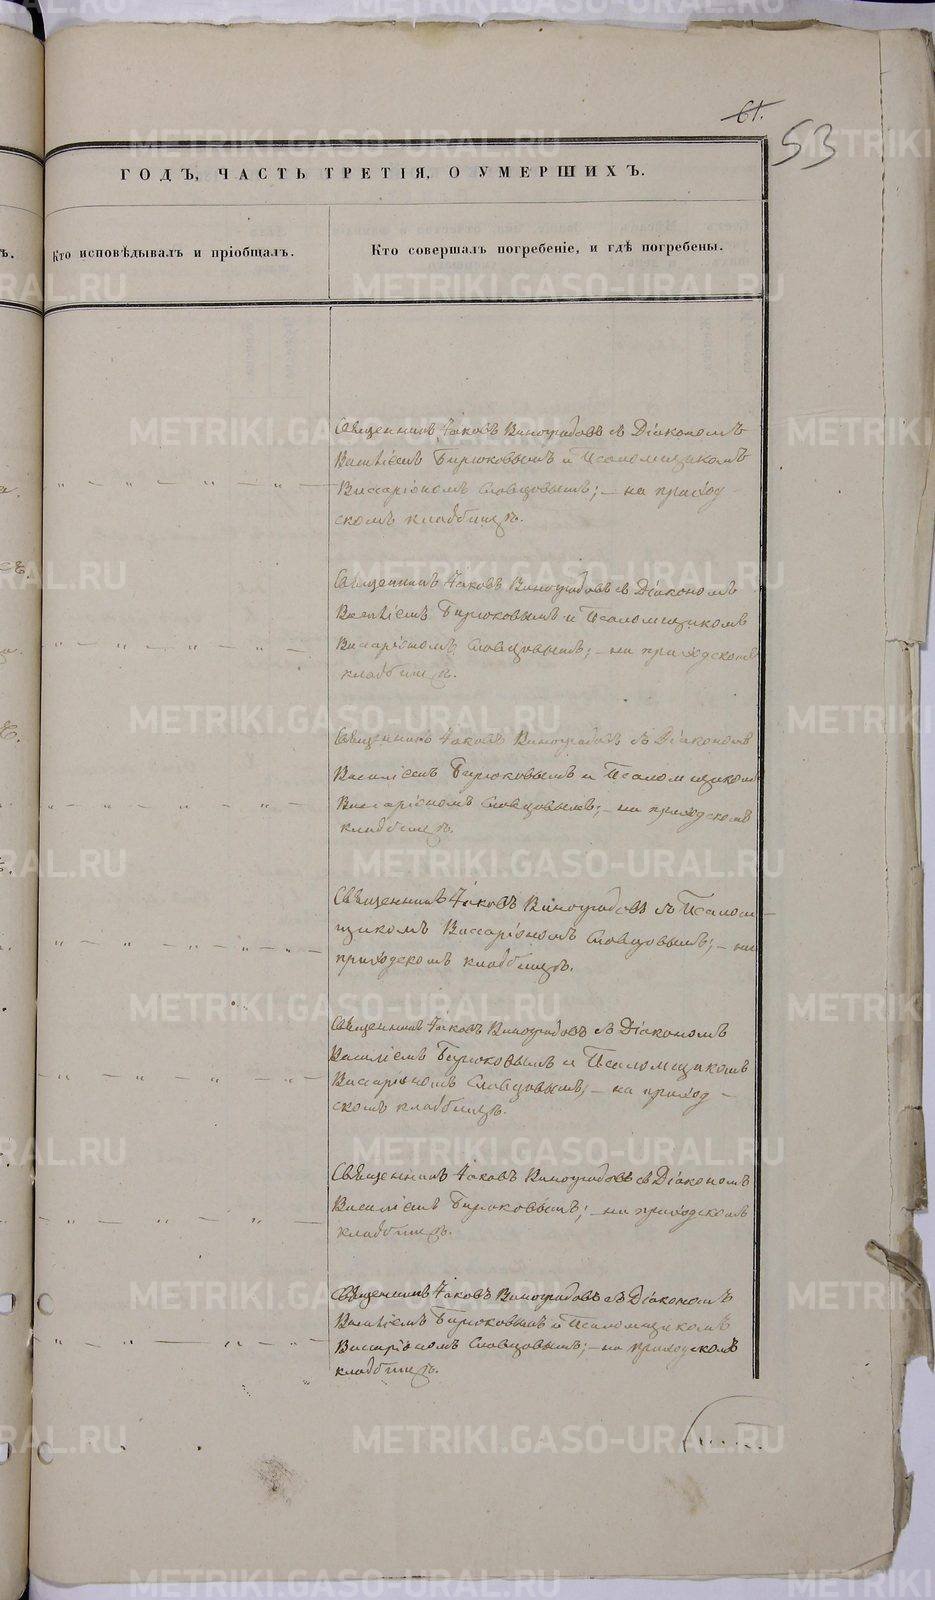 61.
53
ГОДЪ, ЧАСТЬ ТРЕТІЯ, О УМЕРШИХЪ.
Кто исповѣдывалъ и пріобщалъ.
Кто совершалъ погребеніе, и гдѣ погребены.
Священникъ Іаковъ Виноградовъ съ Діакономъ
Василіемъ Бирюковымъ и Псаломщикомъ
Виссаріономъ Словцовымъ; – на приход-
скомъ кладбищѣ.
Священникъ Іаковъ Виноградовъ съ Діакономъ
Василіемъ Бирюковымъ и Псаломщикомъ
Виссаріономъ Словцовымъ; – на приходскомъ
кладбищѣ.
Священникъ Іаковъ Виноградовъ съ Діакономъ
Василіемъ Бирюковымъ и Псаломщикомъ
Виссаріономъ Словцовымъ; – на приходскомъ
кладбищѣ.
Священникъ Іаковъ Виноградовъ съ Псалом-
щикомъ Виссаріономъ Словцовымъ; – на
приходскомъ кладбищѣ.
Священникъ Іаковъ Виноградовъ съ Діакономъ
Василіемъ Бирюковымъ и Псаломщикомъ
Виссаріономъ Словцовымъ; – на приход-
скомъ кладбищѣ.
Священникъ Іаковъ Виноградовъ съ Діакономъ
Василіемъ Бирюковымъ; – на приходскомъ
кладбищѣ.
Священникъ Іаковъ Виноградовъ съ Діакономъ
Василіемъ Бирюковымъ и Псаломщикомъ
Виссаріономъ Словцовымъ; – на приходскомъ
кладбищѣ.
METRIKI.GASO-URAL.RU